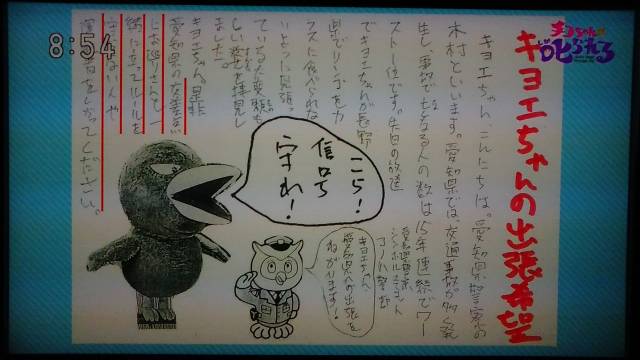 8:54
チコちゃんに
叱られる
キヨエちゃんの出張希望
キヨエちゃん、こんにちは。愛知県警察の
木村といいます。愛知県では、交通事故が多く発
生し、事故で亡くなる人の数は15年連続でワー
スト一位です。先日の放送
でキヨエちゃんが長野
県でリンゴをカ
ラスに食べられな
いように見張っ
ている大変勇ま
しい姿を拝見し
ました。
キヨエちゃん是非
愛知県の交差点
にお巡りさんと一
緒に立ってルールを
守らない人や
こら!
信号
守れ!
愛知県警察
シンボルマスコット
コノハ警部
キヨエちゃん
愛知県への出張を
おねがいします!